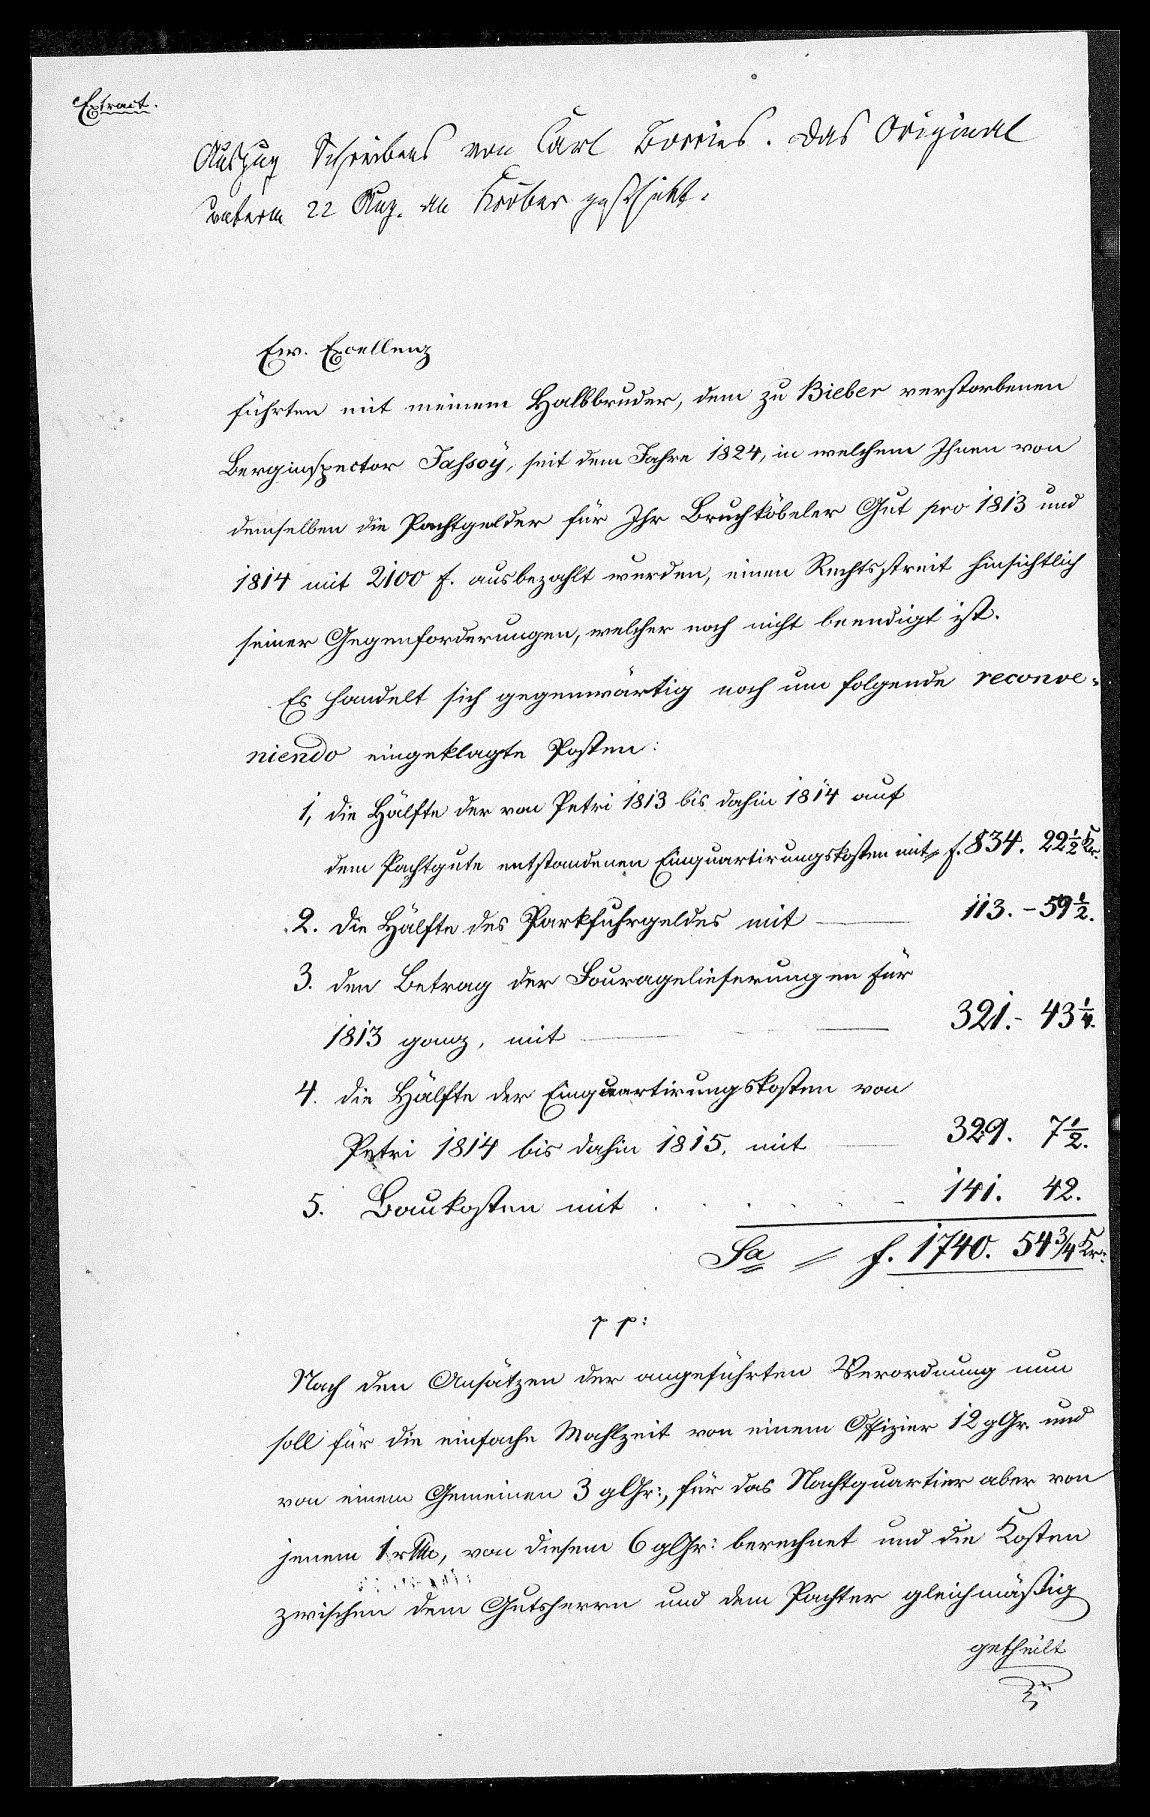 Extract.
Auszug Schreibens von Carl Borries. Das Original
unterm 22 Aug. an Kröber geschickt.
Ew. Excellenz
führten mit meinem Halbbruder, dem zu Bieber verstorbenen
Berginspector Jassoÿ, seit dem Jahre 1824, in welchem Ihnen von
demselben die Pachtgelder für Ihr Bruchköbeler Gut pro 1813 und
1814 mit 2100 f. ausbezahlt wurden, einen Rechtsstreit hinsichtlich
seiner Gegenforderungen, welcher noch nicht beendigt ist.
Es handelt sich gegenwärtig noch um folgende reconve-
niendo eingeklagte Posten:
1, die Hälfte der von Petri 1813 bis dahin 1814 auf
dem Pachtgute entstandenen Einquartirungskosten mit f. 834. 22 1/2 Kr.
2. die Hälfte des Parkfuhrgeldes mit — 113. - 59 1/2.
3. den Betrag der Fouragelieferungen für
1813 ganz, mit — 321. - 43 1/4.
4. die Hälfte der Einquartirungskosten von
Petri 1814 bis dahin 1815, mit — 329. 7 1/2.
5. Baukosten mit . . . . . 141. 42.
Sa = f. 1740. 54 3/4 Kr:
p p:
Nach den Ansätzen der angeführten Verordnung nun
soll für die einfache Mahlzeit von einem Offizier 12 gGr. und
von einem Gemeinen 3 gGr:, für das Nachtquartier aber von
jenem 1 rth, von diesem 6 gGr: berechnet und die Kosten
zwischen dem Gutsherrn und dem Pachter gleichmäßig
getheilt